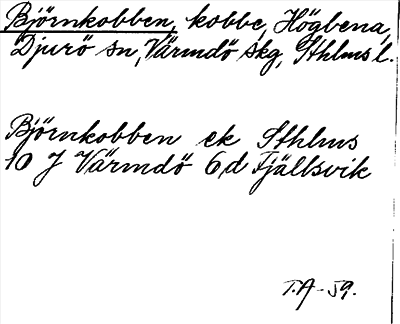 Björnkobben, kobbe, Högbena,
Djurö sn, Värmdö skg, Sthlms l.
Björnkobben ek Sthlms
10 J Värmdö 6d Fjällsvik
T.A -59.